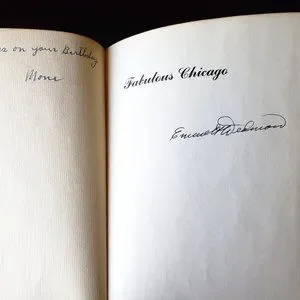 es on your Birthday
Mone
Fabulous Chicago
Emmett Dedmon